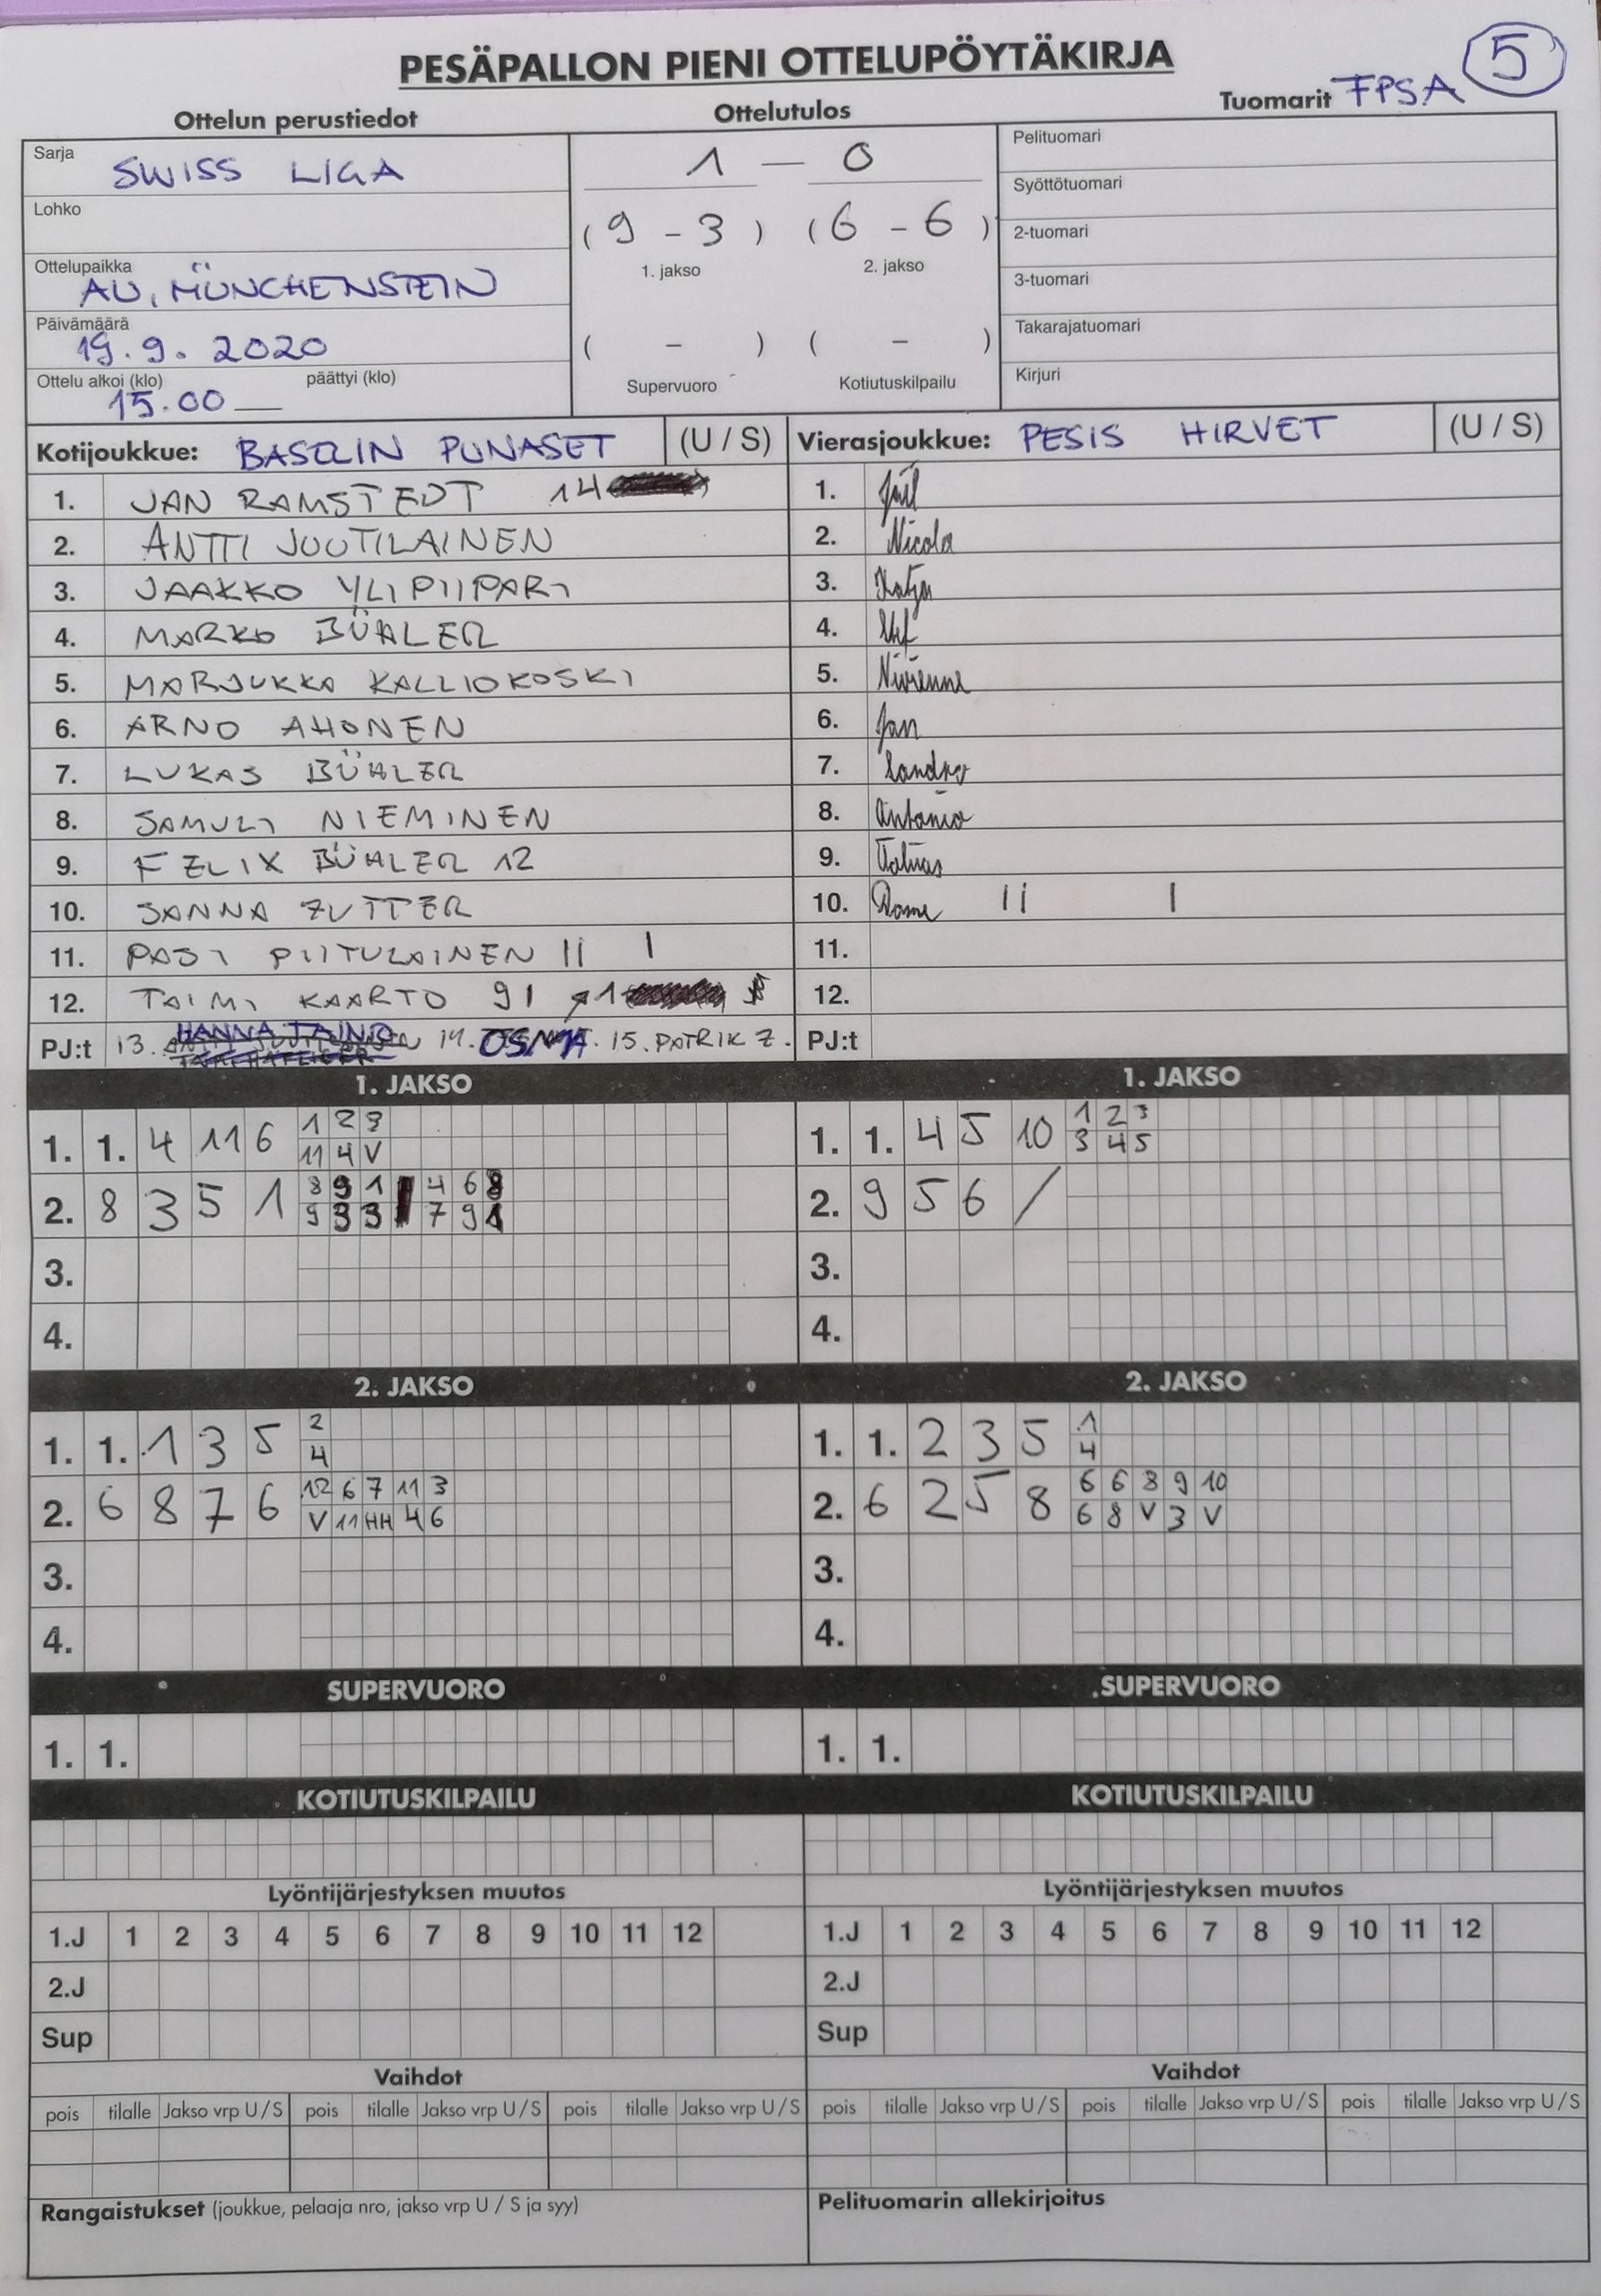 PESÄPALLON PIENI OTTELUPÖYTÄKIRJA
5
Ottelun perustiedot Ottelutulos Tuomarit FPSA
Sarja SWISS LIGA
Lohko
Ottelupaikka AU, MÜNCHENSTEIN
Päivämäärä 19.9. 2020
Ottelu alkoi (klo) 15.00 — päättyi (klo)
1 — 0
( 9 - 3 ) ( 6 - 6 )
1. jakso 2. jakso
( - ) ( - )
Supervuoro Kotiutuskilpailu
Pelituomari
Syöttötuomari
2-tuomari
3-tuomari
Takarajatuomari
Kirjuri
Kotijoukkue: BASELIN PUNASET (U / S) Vierasjoukkue: PESIS HIRVET (U / S)
1. JAN RAMSTEDT 14
2. ANTTI JUUTILAINEN
3. JAAKKO YLIPIIPARI
4. MARKO BÜHLER
5. MARJUKKA KALLIOKOSKI
6. ARNO AHONEN
7. LUKAS BÜHLER
8. SAMULI NIEMINEN
9. FELIX BÜHLER 12
10. SANNA ZUTTER
11. PASI PIITULAINEN II I
12. TAIMI KAARTO 91
PJ:t 13. HANNA TAINO 14. OSMA 15. PATRIK Z.
1.
2. Nicola
3. Katja
4.
5.
6. Jan
7. Sandro
8. Antonio
9.
10. II I
11.
12.
PJ:t
1. JAKSO 1. JAKSO
1. 1. 4 11 6 1 2 3
11 4 V
2. 8 3 5 1 8 9 1 4 6 8
9 3 3 7 9 1
3.
4.
1. 1. 4 5 10 1 2 3
3 4 5
2. 9 5 6 /
3.
4.
2. JAKSO 2. JAKSO
1. 1. 1 3 5 2
4
2. 6 8 7 6 12 6 7 11 3
V 11 HH 4 6
3.
4.
1. 1. 2 3 5 1
4
2. 6 2 5 8 6 6 8 9 10
6 8 V 3 V
3.
4.
SUPERVUORO SUPERVUORO
1. 1. 1. 1.
KOTIUTUSKILPAILU KOTIUTUSKILPAILU
Lyöntijärjestyksen muutos Lyöntijärjestyksen muutos
1.J 1 2 3 4 5 6 7 8 9 10 11 12 1.J 1 2 3 4 5 6 7 8 9 10 11 12
2.J 2.J
Sup Sup
Vaihdot Vaihdot
pois tilalle Jakso vrp U / S pois tilalle Jakso vrp U / S pois tilalle Jakso vrp U / S pois tilalle Jakso vrp U / S pois tilalle Jakso vrp U / S pois tilalle Jakso vrp U / S
Rangaistukset (joukkue, pelaaja nro, jakso vrp U / S ja syy) Pelituomarin allekirjoitus